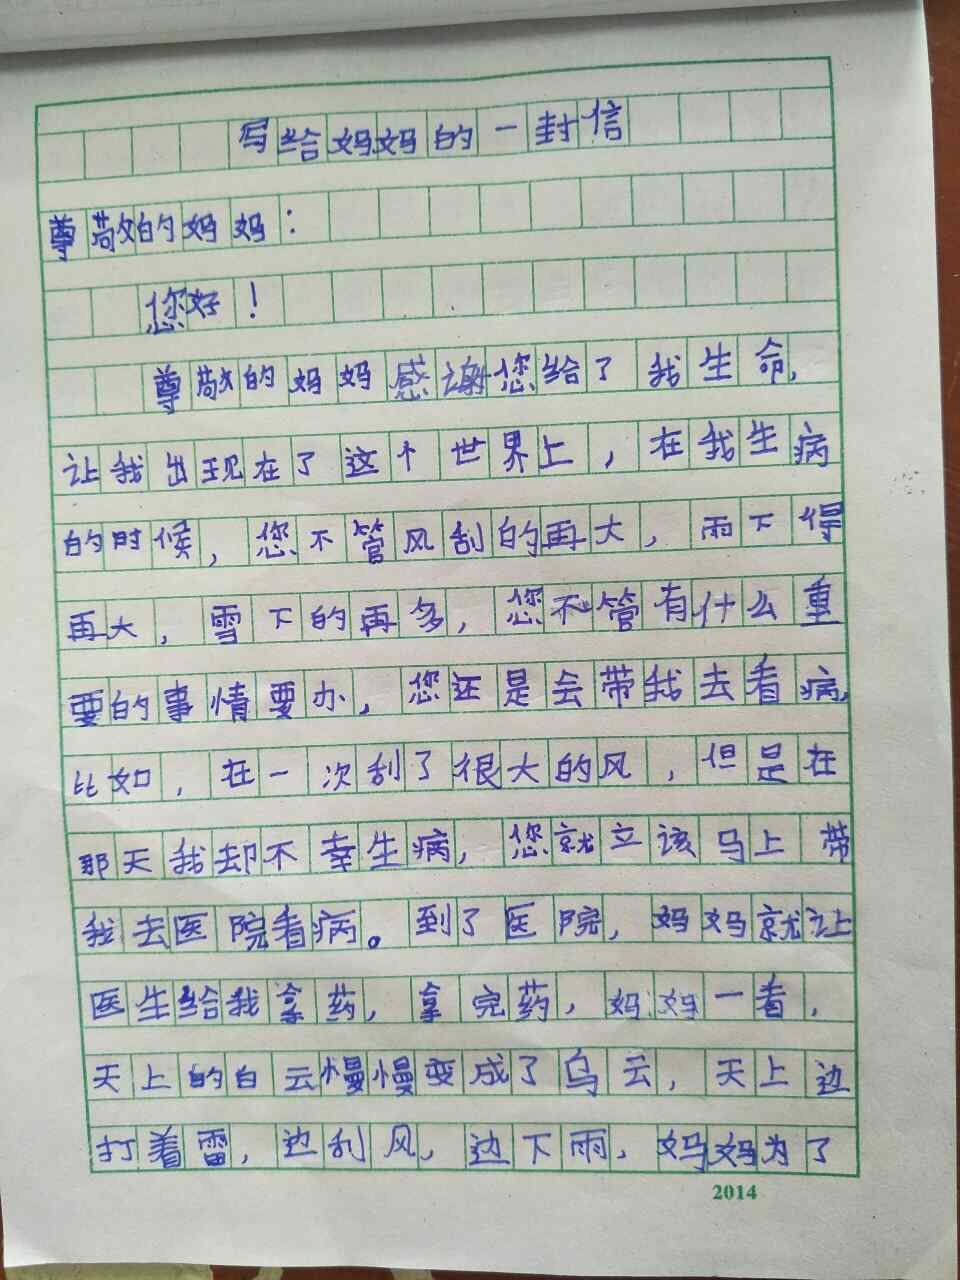 写给妈妈的一封信
尊敬的妈妈：
您好！
尊敬的妈妈感谢您给了我生命，
让我出现在了这个世界上，在我生病
的时候，您不管风刮的再大，雨下得
再大，雪下的再多，您不管有什么重
要的事情要办，您还是会带我去看病，
比如，在一次刮了很大的风，但是在
那天我却不幸生病，您就立该马上带
我去医院看病。到了医院，妈妈就让
医生给我拿药，拿完药，妈妈一看，
天上的白云慢慢变成了乌云，天上边
打着雷，边刮风，边下雨，妈妈为了
2014